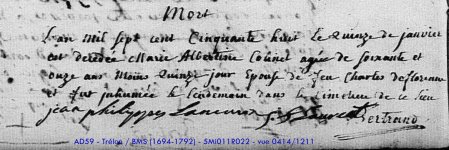 Mort
L'an Mil sept cent Cinquante huit Le Quinze de janvier
est decedée Marie Albertine Colinet agée de soixante et
onze ans Moins Quinze jour Epouse de feu Charles de floreanne
et fut inhumée le lendemain dans le Cimetiere de ce lieu
jean philippes
Bertrand
AD59 - Trélon / BMS (1694-1792) - 5Mi011R022 - vue 0414/1211